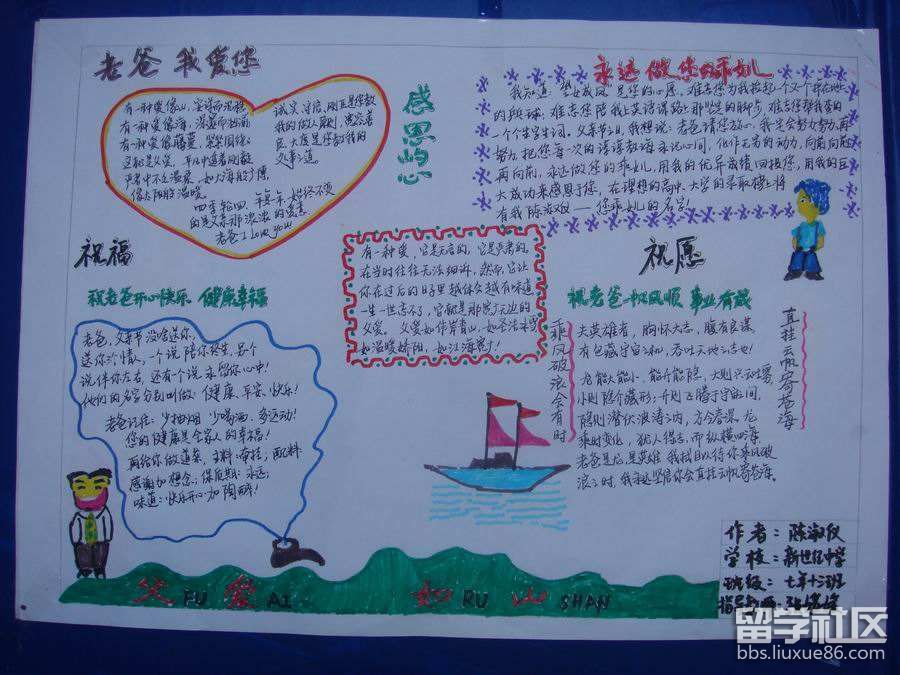 老爸 我爱您
有一种爱像山,坚定而沉稳
有一种爱像海,深蓝而
有一种爱像藤蔓,紧紧围绕
这就是父爱,平凡中透着刚毅
严肃中不乏温柔,如大海般
像太阳般温暖
四季轮回,年复一年,始终不变
的是父亲那浓浓的爱意
老爸 I love you
诚实、守信、刚正是您教
我的做人原则;宽容、豪
大度是您教我的
感恩的心
永远做您的乖女儿
我知道:望女成凤,是您的心愿,难忘您为我拾起一个又一个
的跟球,难忘您陪我上英语课路上那坚定的脚步,难忘您帮我查的
一个个生字生词,父亲节了,我想说:老爸请您放心,我定会努力努力再
努力,把您每一次的谆谆教诲永记心间,化作无穷的动力,向前向前
再向前,永远做您的乖女儿,用我的优异成绩回报您,用我的巨
大成功来感恩于您,在理想的高中、大学的录取榜上将
有我陈淑仪——您乖女儿的名字!
祝福
祝老爸开心快乐 健康幸福
老爸,父亲节没啥送你,
送你三个情人,一个说陪你终生,另个
说伴你左右,还有个说永留你心中!
他们的名字分别叫做:健康、平安、快乐!
老爸记住:少抽烟 少喝酒,多运动!
您的健康是全家人的幸福!
再给你做道菜,主料:牵挂,配料:
感谢加想念;保质期:永远;
味道:快乐开心加陶醉!
有一种爱,它是无言的,它是严肃的,
在当时往往无法细讲,然而,它让
你在过后的日子里越体会越有味道
一生一世忘不了,它就是那宽广无边的
父爱。父爱如伟岸青山,
如温暖娇阳,如江海
祝愿
祝老爸一帆风顺 事业有成
乘风破浪会有时
直挂云帆寄苍海
夫英雄者,胸怀大志,腹有良谋
有包藏宇宙之机,吞吐天地之志也!
老龙能大能小,能升能隐,大则兴云吐雾,
小则隐介藏形;升则飞腾于宇宙间,
隐则潜伏波涛之内,方今春深,龙
乘时变化,犹人得志,而纵横四海
老爸是龙,是英雄,我拭目以待你乘风破
浪之时,我永远坚陪你会直挂云帆寄苍海。
父 FU 爱 AI 如 RU 山 SHAN
作者:陈淑仪
学校:新世纪中学
班级:七年十三班
指导教师:
留学社区
bbs.liuxue86.com